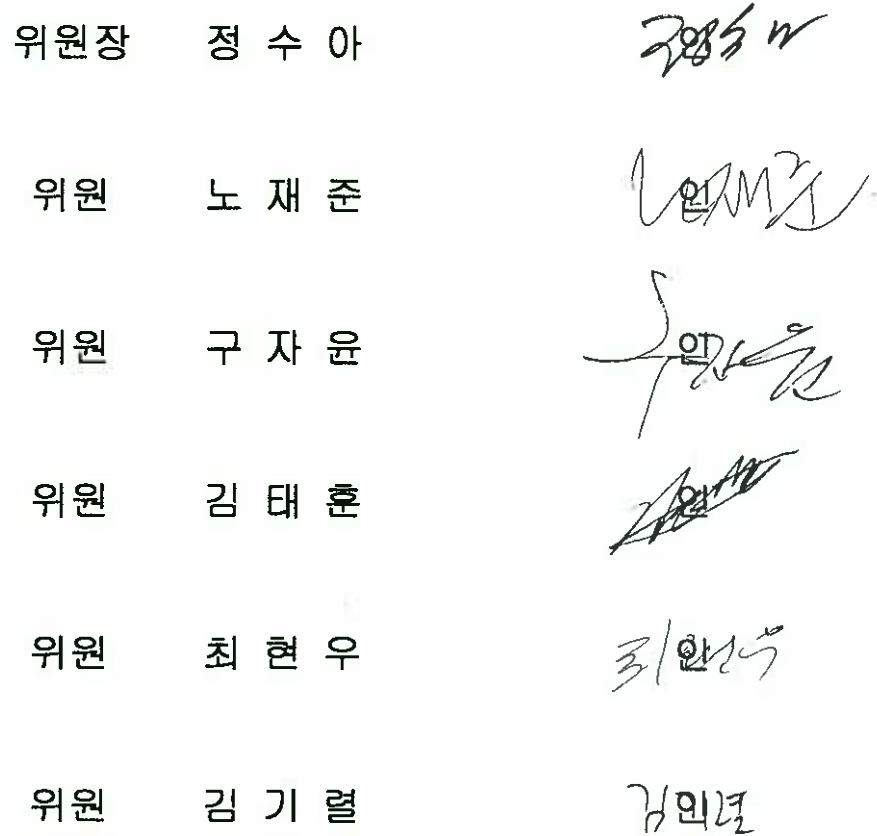 위원장 정 수 아 인
위원 노 재 준 인
위원 구 자 윤 인
위원 김 태 훈 인
위원 최 현 우 인
위원 김 기 렬 인